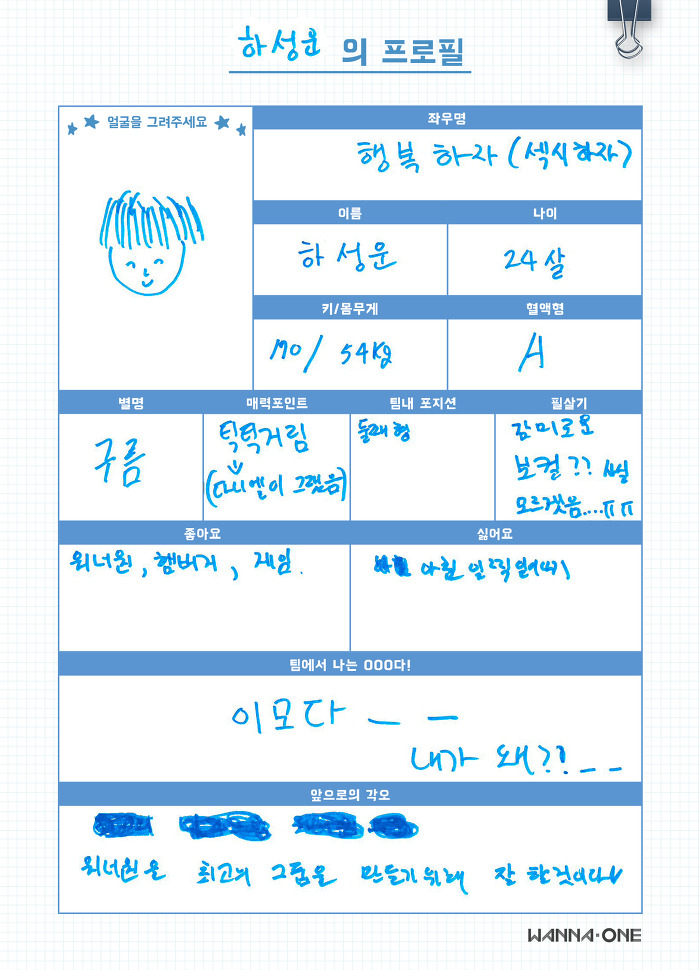 하성운 의 프로필
얼굴을 그려주세요
좌우명
행복 하자 (섹시하자)
이름
나이
하성운
24살
키/몸무게
혈액형
170/ 54kg
A
별명
매력포인트
팀내 포지션
필살기
구름
틱턱거림
(다니엘이 그랬음)
둘째형
감미로운
보컬?? 사실
모르겠음....ㅠㅠ
좋아요
싫어요
워너원, 햄버거, 게임.
아침 일찍 일어나기
팀에서 나는 OOO다!
이모다 _ _
내가 왜?!_ _
앞으로의 각오
워너원을 최고의 그룹을 만들기 위해 잘 할 것이다
WANNA·ONE